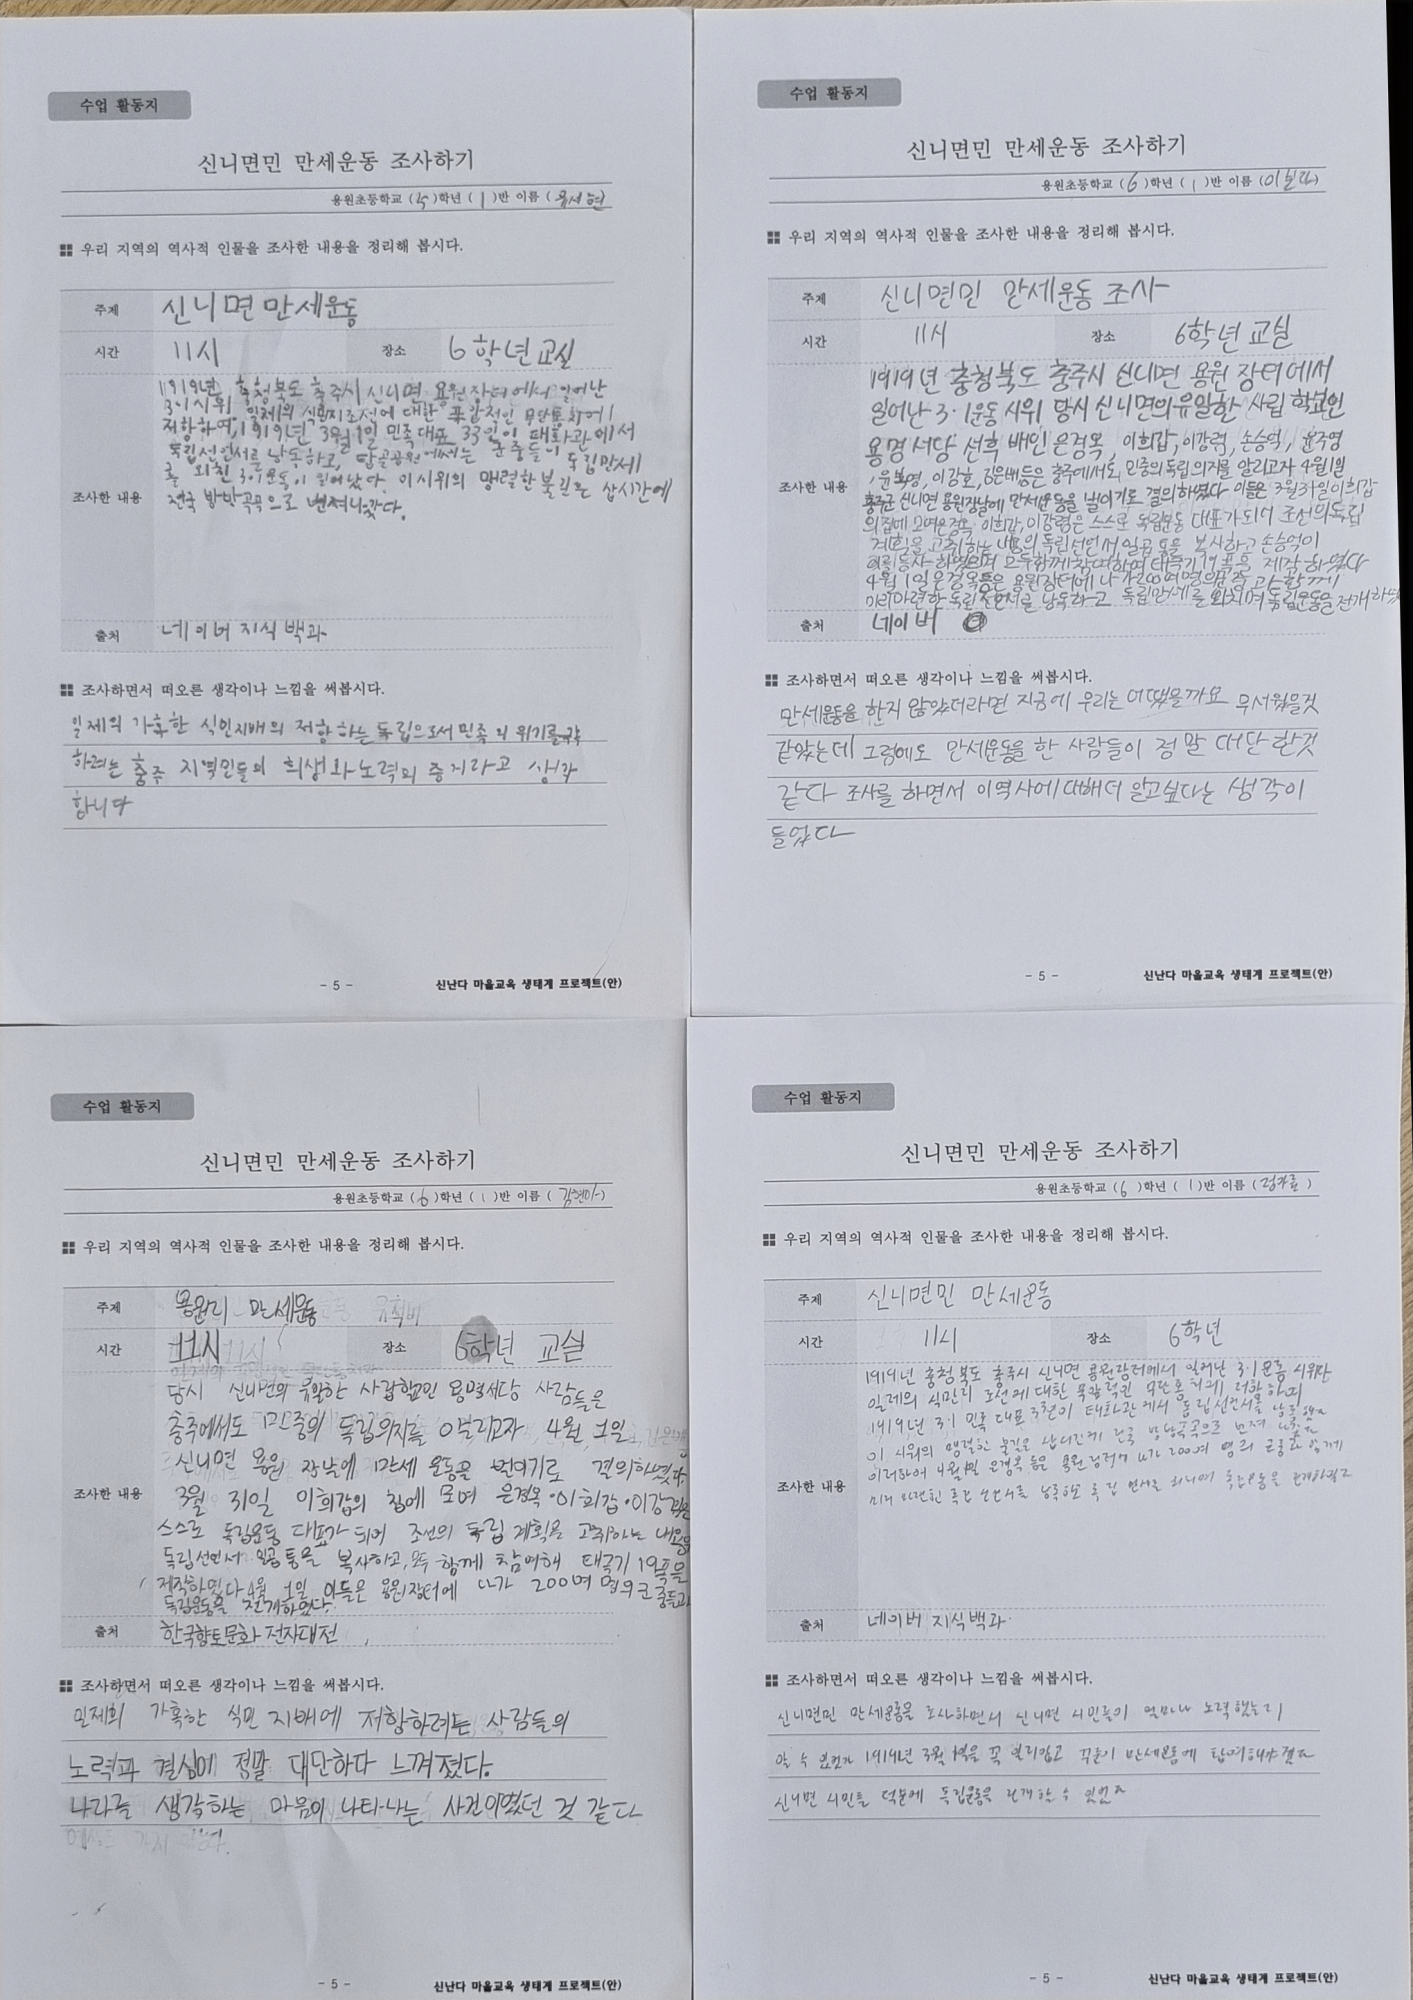 수업 활동지
신니면민 만세운동 조사하기
용원초등학교 (5)학년 (1)반 이름 (
우리 지역의 역사적 인물을 조사한 내용을 정리해 봅시다.
주제 신니면 만세운동
시간 11시 장소 6학년 교실
1919년 충청북도 충주시 신니면 용원 장터에서 일어난
3·1시위 일제의 식민지조선에 대한 폭압적인 무단통치에
저항하여, 1919년 3월 1일 민족대표 33인이 태화관에서
독립선언서를 낭독하고, 탑골공원에서는 군중들이 독립만세
를 외친 3.1운동이 일어났다. 이시위의 맹렬한 불길은 삽시간에
조사한 내용 전국 방방곡곡으로 번져나갔다.
출처 네이버 지식백과
조사하면서 떠오른 생각이나 느낌을 써봅시다.
일제의 가혹한 식민지배의 저항하는 독립으로서 민족의 위기를
하려는 충주 지역민들의 희생와 노력의 증거라고 생각
합니다
- 5 - 신난다 마을교육 생태계 프로젝트(안)
수업 활동지
신니면민 만세운동 조사하기
용원초등학교 (6)학년 (1)반 이름 (
우리 지역의 역사적 인물을 조사한 내용을 정리해 봅시다.
주제 신니면민 만세운동 조사
시간 11시 장소 6학년 교실
1919년 충청북도 충주시 신니면 용원 장터에서
일어난 3·1운동 시위 당시 신니면의 유일한 사립 학교인
용명 서당 선후 배인 은경옥, 이희갑, 이강렴, 손승억, 윤주영
, 윤복영, 이강호, 김은배등은 충주에서도, 민중의 독립의지를 알리고자 4월1일
조사한 내용 충주군 신니면 용원장날에 만세운동을 벌이기로 결의하였다 이들은 3월31일이희갑
의 집에 모여은경옥·이희갑, 이강렴은 스스로 독립운동 대표가되어 조선의독립
계획을 고취하는 내용의 독립선언서 일곱 통을 복사하고 손승억이
이를 등사 하였으며 모두함께 참여하여 태극기 19폭을 제작 하였다
4월 1일 은경옥등은 용원장터에 나가200여명의군중과함께
미리마련한 독립선언서를 낭독하고 독립만세를 외치며 독립운동을전개하였
출처 네이버
조사하면서 떠오른 생각이나 느낌을 써봅시다.
만세운동을 한지 않았더라면 지금에 우리는 어땠을까요 무서웠을것
같았는데 그럼에도 만세운동을 한 사람들이 정말 대단한것
같다 조사를 하면서 이역사에대해더 알고싶다는 생각이
들었다
- 5 - 신난다 마을교육 생태계 프로젝트(안)
수업 활동지
신니면민 만세운동 조사하기
용원초등학교 (6)학년 (1)반 이름 (
우리 지역의 역사적 인물을 조사한 내용을 정리해 봅시다.
주제 용원리 만세운동
시간 11시 장소 6학년 교실
당시 신니면의 유일한 사립학교인 용명서당 사람들은
충주에서도 민중의 독립의지를 알리고자 4월 1일
신니면 용원 장날에 만세 운동을 벌이기로 결의하였다.
조사한 내용 3월 31일 이희갑의 집에 모여 은경옥·이희갑·이강렴은
스스로 독립운동 대표가 되어 조선의 독립 계획을 고취하는 내용의
독립선언서 일곱 통을 복사하고, 모두 함께 참여해 태극기 19폭을
제작하였다 4월 1일 이들은 용원장터에 나가 200여 명의 군중들과
독립운동을 전개하였다.
출처 한국향토문화 전자대전
조사하면서 떠오른 생각이나 느낌을 써봅시다.
일제의 가혹한 식민 지배에 저항하려는 사람들의
노력과 결심이 정말 대단하다 느껴졌다.
나라를 생각하는 마음이 나타나는 사건이였던 것 같다
- 5 - 신난다 마을교육 생태계 프로젝트(안)
수업 활동지
신니면민 만세운동 조사하기
용원초등학교 (6)학년 (1)반 이름 (
우리 지역의 역사적 인물을 조사한 내용을 정리해 봅시다.
주제 신니면민 만세운동
시간 11시 장소 6학년
1919년 충청북도 충주시 신니면 용원장터에서 일어난 3·1운동 시위
일제의 식민지 조선에 대한 폭압적인 무단통치에 저항하며
1919년 3.1 민족 대표 이 태화관에서 독립선언서를 낭독했고
이 시위의 맹렬한 불길은 삽시간에 전국 방방곡곡으로 번져 나갔다
이러하여 4월1일 은경옥 등은 용원장터에 나가 200여 명의 군중과 함께
조사한 내용 미리 마련한 독립 선언서를 낭독하고 독립 만세를 외치며 독립운동을 전개하였고
출처 네이버 지식백과
조사하면서 떠오른 생각이나 느낌을 써봅시다.
신니면민 만세운동을 조사하면서 신니면 시민들이 얼마나 노력했는지
알 수 있었고 1919년 3월 1일을 꼭 만세운동에 참여해야겠다
신니면 시민들 덕분에 독립운동을 전개할 수 있었다
- 5 - 신난다 마을교육 생태계 프로젝트(안)